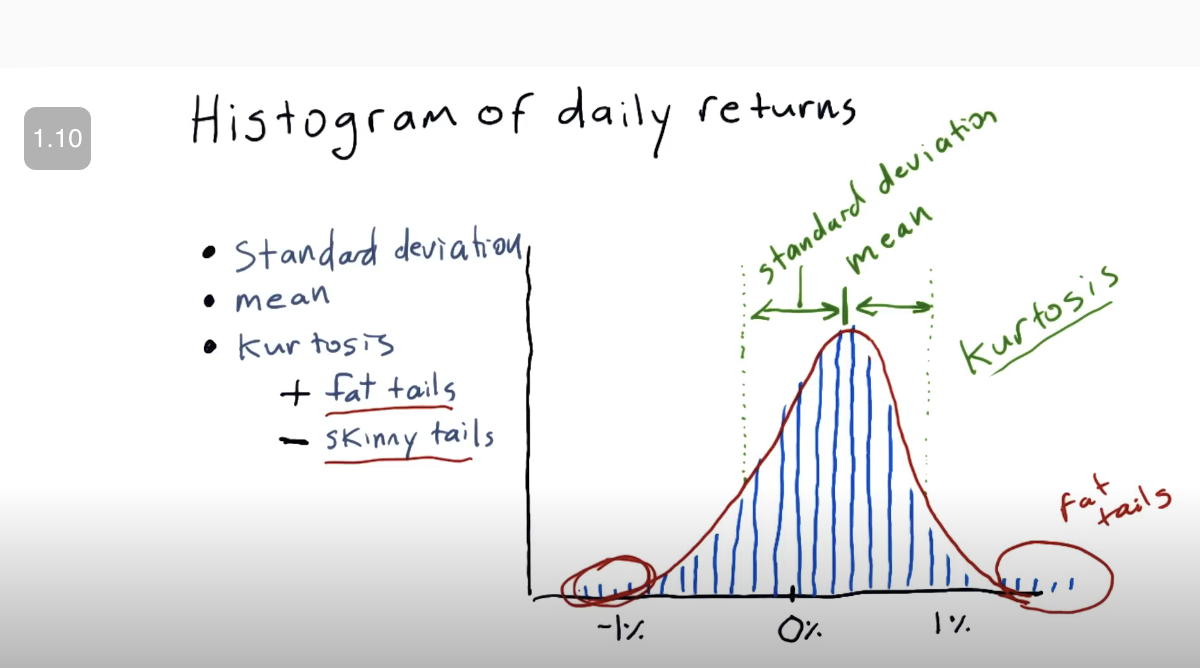 1.10
Histogram of daily returns
• Standard deviation
• mean
• Kurtosis
+ fat tails
- skinny tails
standard deviation
mean
Kurtosis
fat
tails
-1%
0%
1%